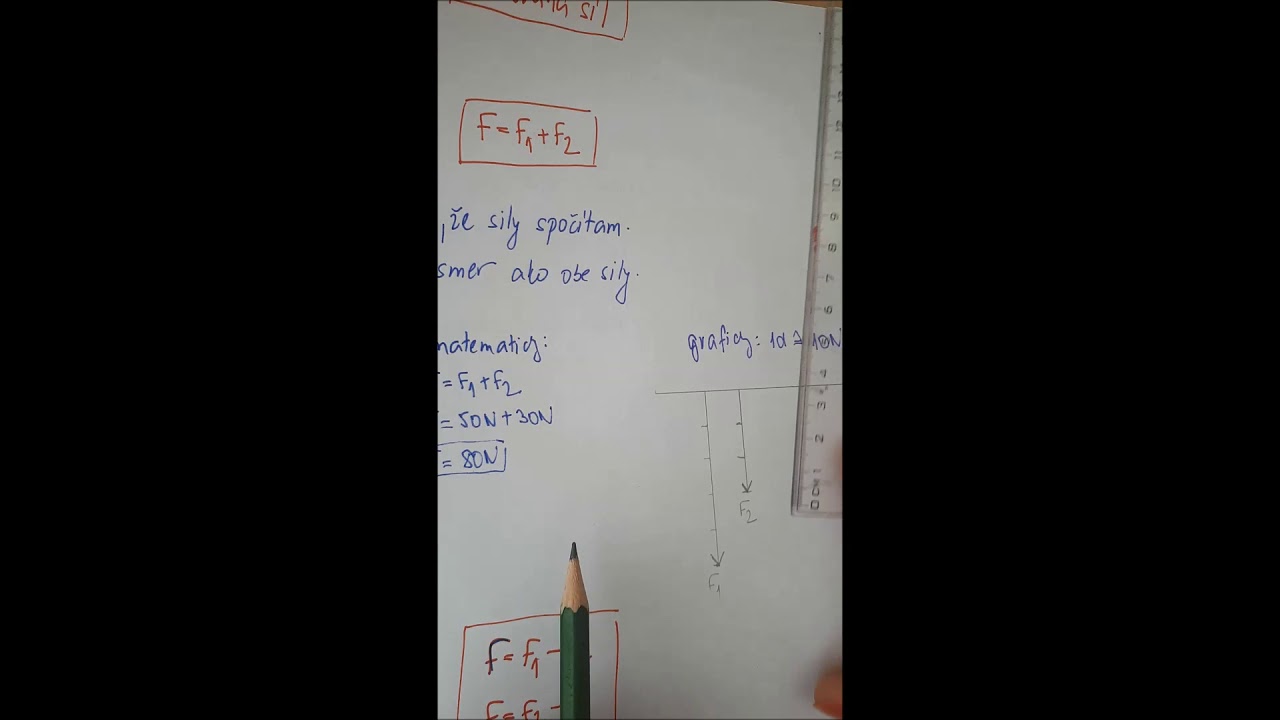 síl
F = F₁ + F₂
, že sily spočítam.
smer ako obe sily.
matematicky:
= F₁ + F₂
= 50N + 30N
= 80N
graficky: 1d ≙ 10N
F₂
F₁
F = F₁ -
F = F₁ -
12
11
10
9
8
7
6
4
3
2
1
0 CM